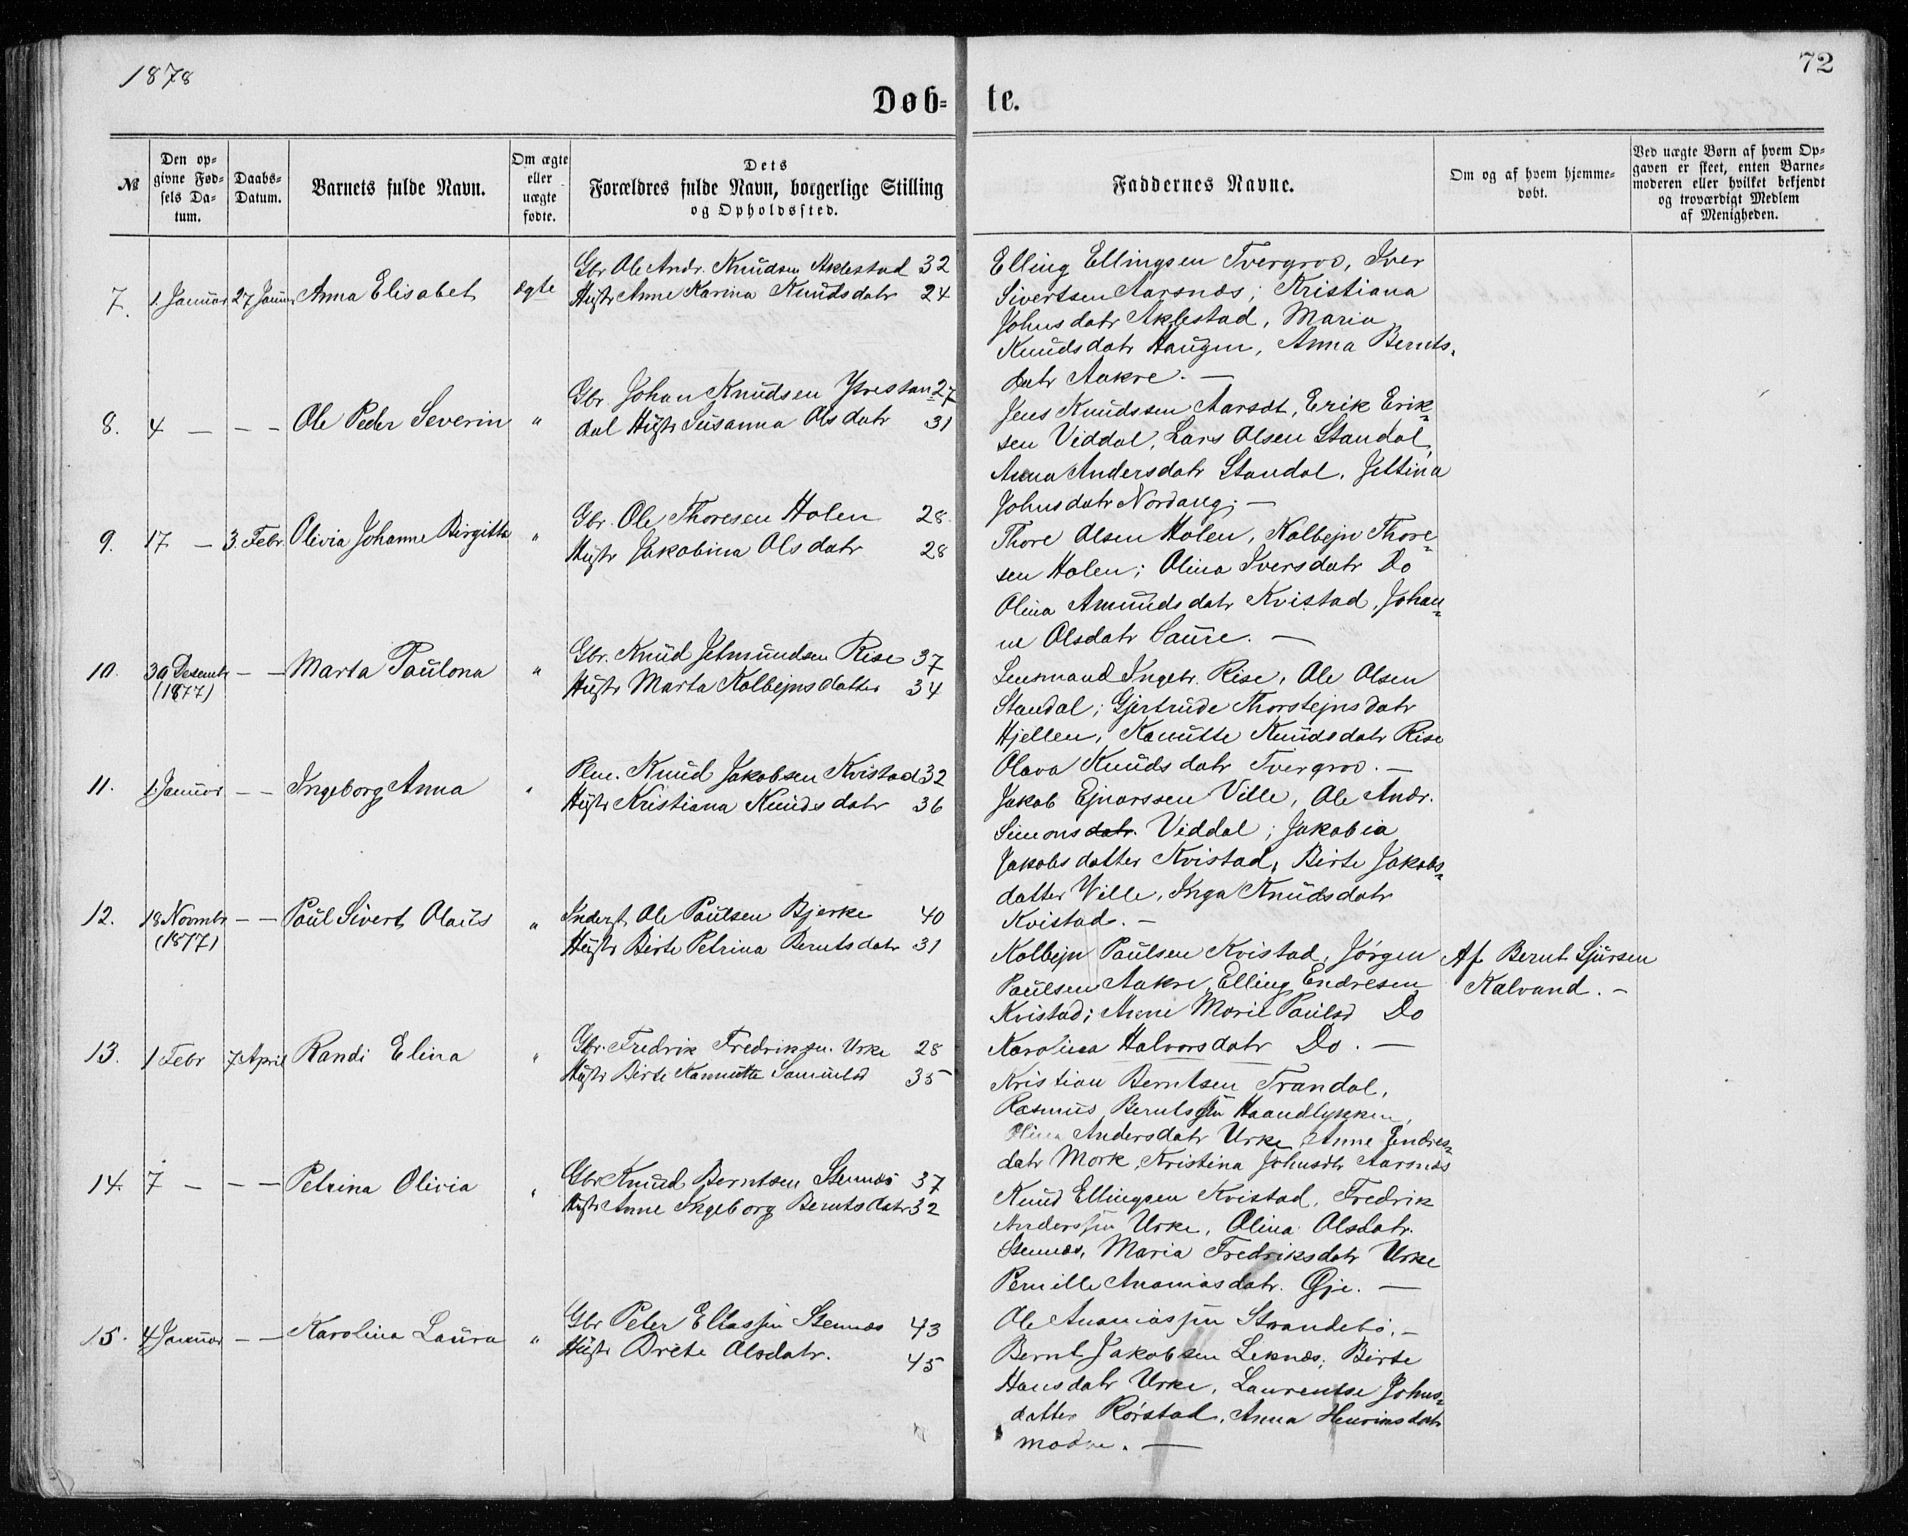 1878
72
Døb- te.
№
Den opgivne Fødsels Datum.
Daabs-Datum.
Barnets fulde Navn.
Om ægte eller uægte fødte.
Dets Forældres fulde Navn, borgerlige Stilling og Opholdssted.
Faddernes Navne.
Om og af hvem hjemmedøbt.
Ved uægte Børn af hvem Opgaven er skeet, enten Barnemoderen eller hvilket bekjendt og troværdigt Medlem af Menigheden.
7. 1. Januar 27 Januar Anna Elisabet ægte
Gbr Ole Andr. Knudsen Aklestad 32
Hustr Anne Karina Knudsdatr 24
Elling Ellingsen Tvergrov, Iver
Sivertsen Aarsnæs; Kristiana
Johnsdatr Aklestad, Maria
Knudsdatr Haugen, Anna Bernts-
datr Aakre. —
8. 4 — — — Ole Peder Severin "
Gbr Johan Knudsen Ytrestan- 27
dal Hustr Susanna Olsdatr 31
Jens Knudssen Aarsdt, Erik Erik-
sen Viddal, Lars Olsen Standal,
Anna Andersdatr Standal, Jettina
Johnsdatr Nordang; —
9. 17 — 3. Febr. Olivia Johanne Birgitte "
Gbr. Ole Thoresen Holen 28
Hustr Jakobina Olsdatr 28
Thore Olsen Holen, Kolbejn Thore-
sen Holen; Olina Iversdatr Do
Olina Amundsdatr Kvistad, Johan-
ne Olsdatr Saure. —
10. 30 Desembr (1877) — — Marta Paulona "
Gbr. Knud Jetmundsen Rise 37
Hustr Marta Kolbejnsdatter 34
Lensmand Ingebr. Rise, Ole Olsen
Standal; Gjertrude Thorstejnsdatr
Hjellen, Kanutte Knudsdatr Rise
Olava Knudsdatr Tvergrov. —
11. 1. Januar — — Ingeborg Anna "
Plm. Knud Jakobsen Kvistad 32
Hustr Kristiana Knudsdatr 36
Jakob Ejnarssen Ville, Ole Andr.
Simonsdatr. Viddal; Jakobia
Jakobsdatter Kvistad, Birte Jakobs-
datter Ville, Inga Knudsdatr
Kvistad. —
12. 18 Novmbr (1877) — — Paul Sivert Olaus "
Inderst. Ole Paulsen Bjerke 40
Hustr Birte Petrina Berntsdatr 31
Kolbejn Paulsen Kvistad, Jørgen
Paulsen Aakre, Elling Endresen
Kvistad; Anne Marie Paulsd Do
Karolina Halvorsdatr Do. —
Af Bernt Sjursen
Kalvand. —
13. 1 Febr 7 April Randi Elina "
Gbr. Fredrik Fredriksen Urke 28
Hustr Birte Kannutta Samuelsd 35
Kristian Berntsen Trandal,
Rasmus Berntssen Haandlykken,
Olina Andersdatr Urke, Anne Endres-
datr Mork, Kristina Johnsdtr Aarsnæs
14. 7 — — — Petrina Olivia "
Gbr Knud Berntsen Stennæs 37
Hustr Anne Ingeborg Berntsdatr 32
Knud Ellingsen Kvistad, Fredrik
Anderssen Urke, Olina Olsdatr.
Stennæs, Maria Fredriksdatr Urke
Pernille Ananiasdatr. Øje. —
15. 4 Januar — — Karolina Laura "
Gbr Peter Eliassen Stennæs 43
Hustr Brite Olsdatr. 45
Ole Ananiassen Strandebø. —
Bernt Jakobsen Leknæs; Birte
Hansdatr Urke, Laurentse Johns-
datter Rørstad, Anna